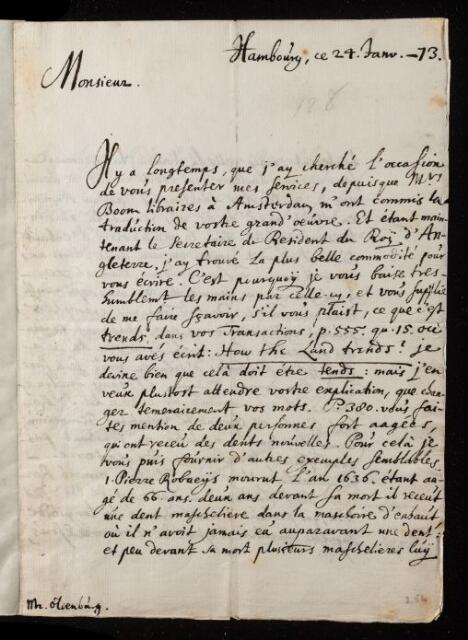 Hambourg, ce 24. Janv. -73.
Monsieur.
128
Il y a longtemps, que j'ay cherché l'occasion
de vous presenter mes services, depuisque Mrs
Boom libraires à Amsterdam m'ont commis la
traduction de vostre grand' oeuvre. Et étant main-
tenant le Secretaire du Resident du Roy d'An-
gleterre, j'ay trouvé la plus belle commodité pour
vous écrire. C'est pourquoy je vous baise tres
humblemt les mains par celle-cy, et vous supplie
de me faire sçavoir, s'il vous plaist, ce que c'est
trends, dans vos Transactions, p. 555. qu. 15. où
vous avés écrit: How the Land trends? je
devine bien que celà doit étre tends: mais j'en
veux plustost attendre vostre explication, que chan-
ger temerairement vos mots. P. 380. vous fai-
tes mention de deux personnes fort aagées,
qui ont receu des dents nouvelles. Pour celà je
vous puis fournir d'autres exemples semblables.
1. Pierre Robaeys mourut l'an 1636. étant aa-
gé de 66 ans. deux ans devant sa mort il receut
une dent mascheliere dans la maschoire d'enhaut
où il n'avoit jamais eu auparavant une dent:
et peu devant sa mort plusieurs maschelieres luy
Mr. Oldenburg.